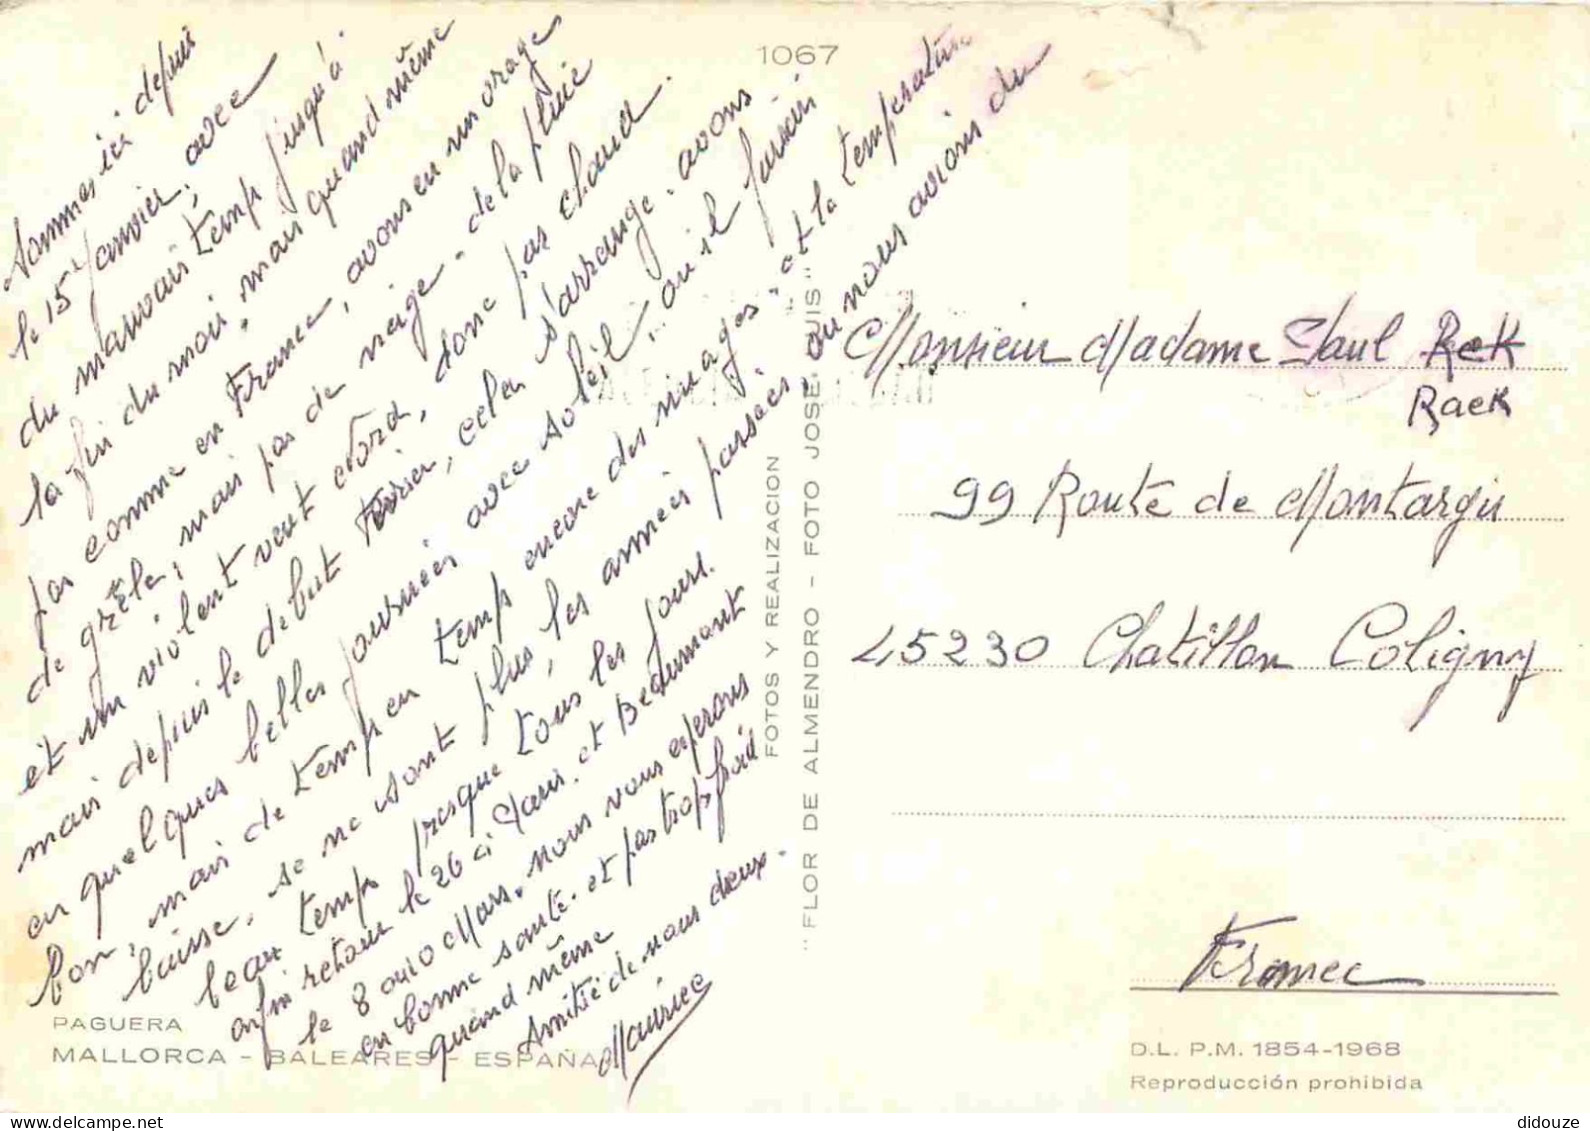 Sommes ici depuis
le 15 Janvier, avec
du mauvais temp jusqu'à
la fin du mois, mais quand même
pas comme en France, avons eu un orage
de grêle, mais pas de neige - de la pluie
et un violent vent Nord, donc pas chaud.
mais depuis le debut Fevrier, cela s'arrange - avons
eu quelques belles journées avec soleil - ou il faisait
bon, mais de temp en temp encore des nuages - et la temperature
baisse, se ne sont plus, les années passées, ou nous avions du
beau temps presque tous les jours.
enfin retour le 26 à Paris. et Beaumont
le 8 ou 10 Mars. nous vous esperons
en bonne santé. et pas trop froid
quand même
Amitié de nous deux -
Maurice
PAGUERA
MALLORCA - BALEARES - ESPAÑA
1067
FOTOS Y REALIZACION
"FLOR DE ALMENDRO - FOTO JOSE LUIS"
Monsieur Madame Paul Rek
Raek
99 Route de Montargis
45230 Chatillon Coligny
France
D.L. P.M. 1854-1968
Reproducción prohibida
didouze